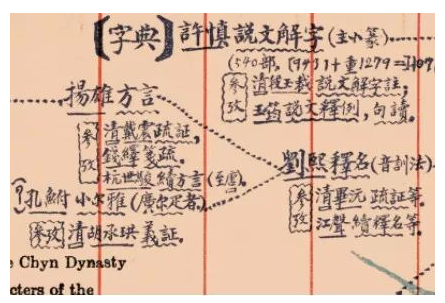 【字典】許慎說文解字(主小篆)
(540部,
參攷 清段玉裁說文解字註,
王筠說文釋例,句讀.
揚雄方言
參攷 清戴震疏証,
錢繹箋疏.
杭世駿續方言(至唐).
劉熙釋名(音訓法)
參攷 清畢沅疏証等.
江聲續釋名等.
(?)孔鮒小尔雅(廣尔疋者)
參攷 清胡承珙義証.
Chyn Dynasty
cters of the